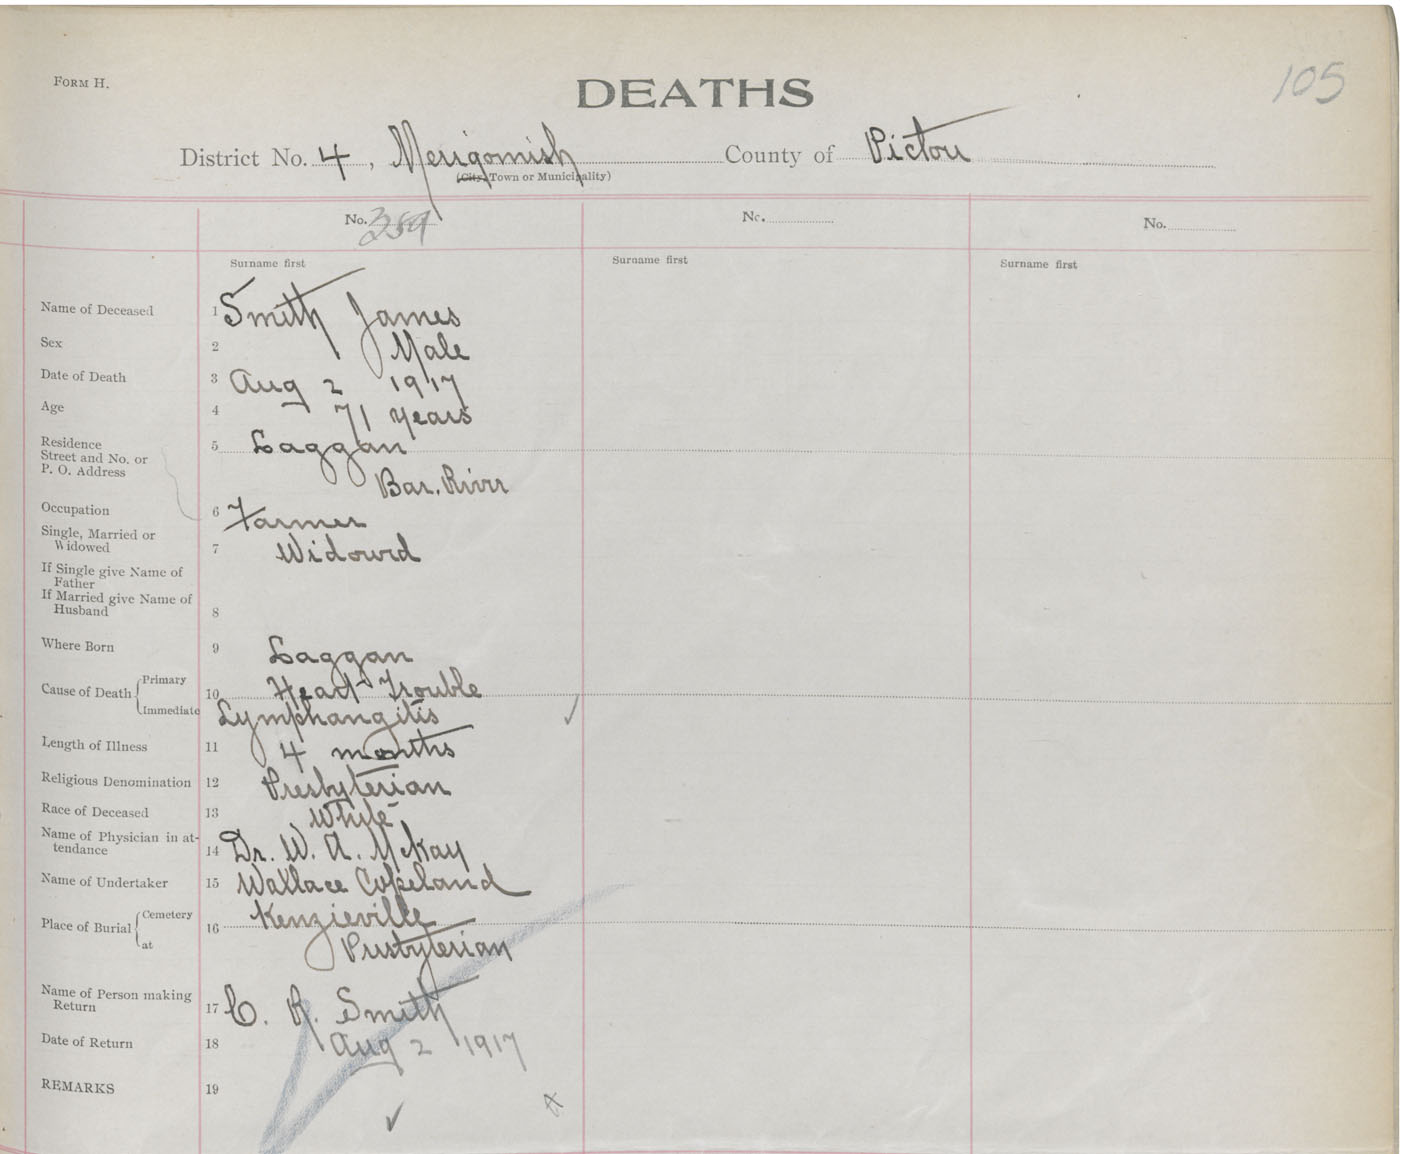 105
FORM H.
DEATHS
District No. 4, Merigomish County of Pictou
(City, Town or Municipality)
No. 359 No. No.
Surname first Surname first Surname first
Name of Deceased 1 Smith James
Sex 2 Male
Date of Death 3 Aug 2 1917
Age 4 71 years
Residence 5 Laggan
Street and No. or
P. O. Address Bar. River
Occupation 6 Farmer
Single, Married or
Widowed 7 Widowed
If Single give Name of
Father
If Married give Name of
Husband 8
Where Born 9 Laggan
Cause of Death Primary 10 Heart Trouble
Immediate Lymphangitis
Length of Illness 11 4 months
Religious Denomination 12 Presbyterian
Race of Deceased 13 White
Name of Physician in at-
tendance 14 Dr. W. A. McKay
Name of Undertaker 15 Wallace Copeland
Place of Burial Cemetery 16 Kenzieville
at Presbyterian
Name of Person making
Return 17 C. R. Smith
Date of Return 18 Aug 2 1917
REMARKS 19